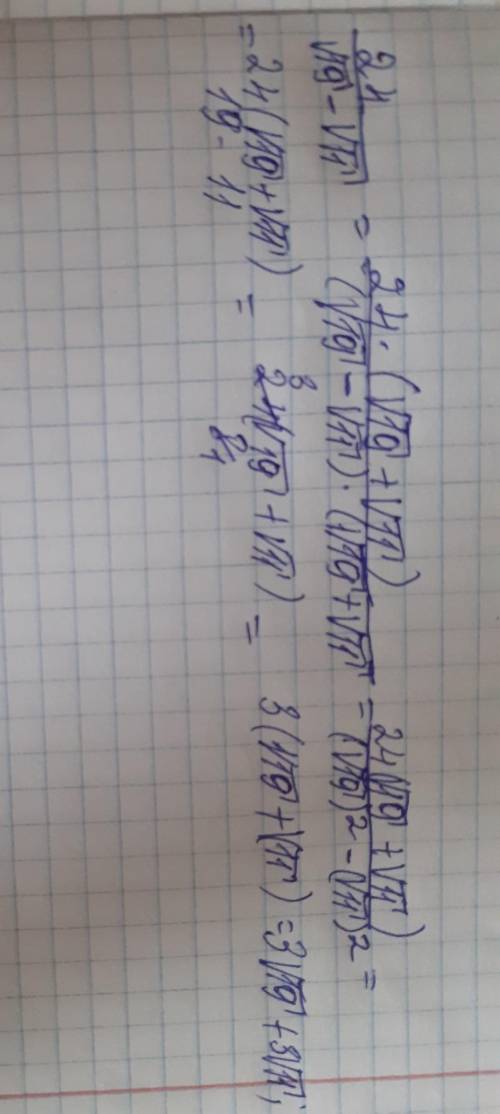 24/(√19 - √11) = 24·(√19 + √11)/((√19 - √11)·(√19 + √11) = 24(√19 + √11)/((√19)2 - (√11)2 =
= 24(√19 + √11)/(19 - 11) = 24(√19 + √11)/8 = 3(√19 + √11) = 3√19 + 3√11;